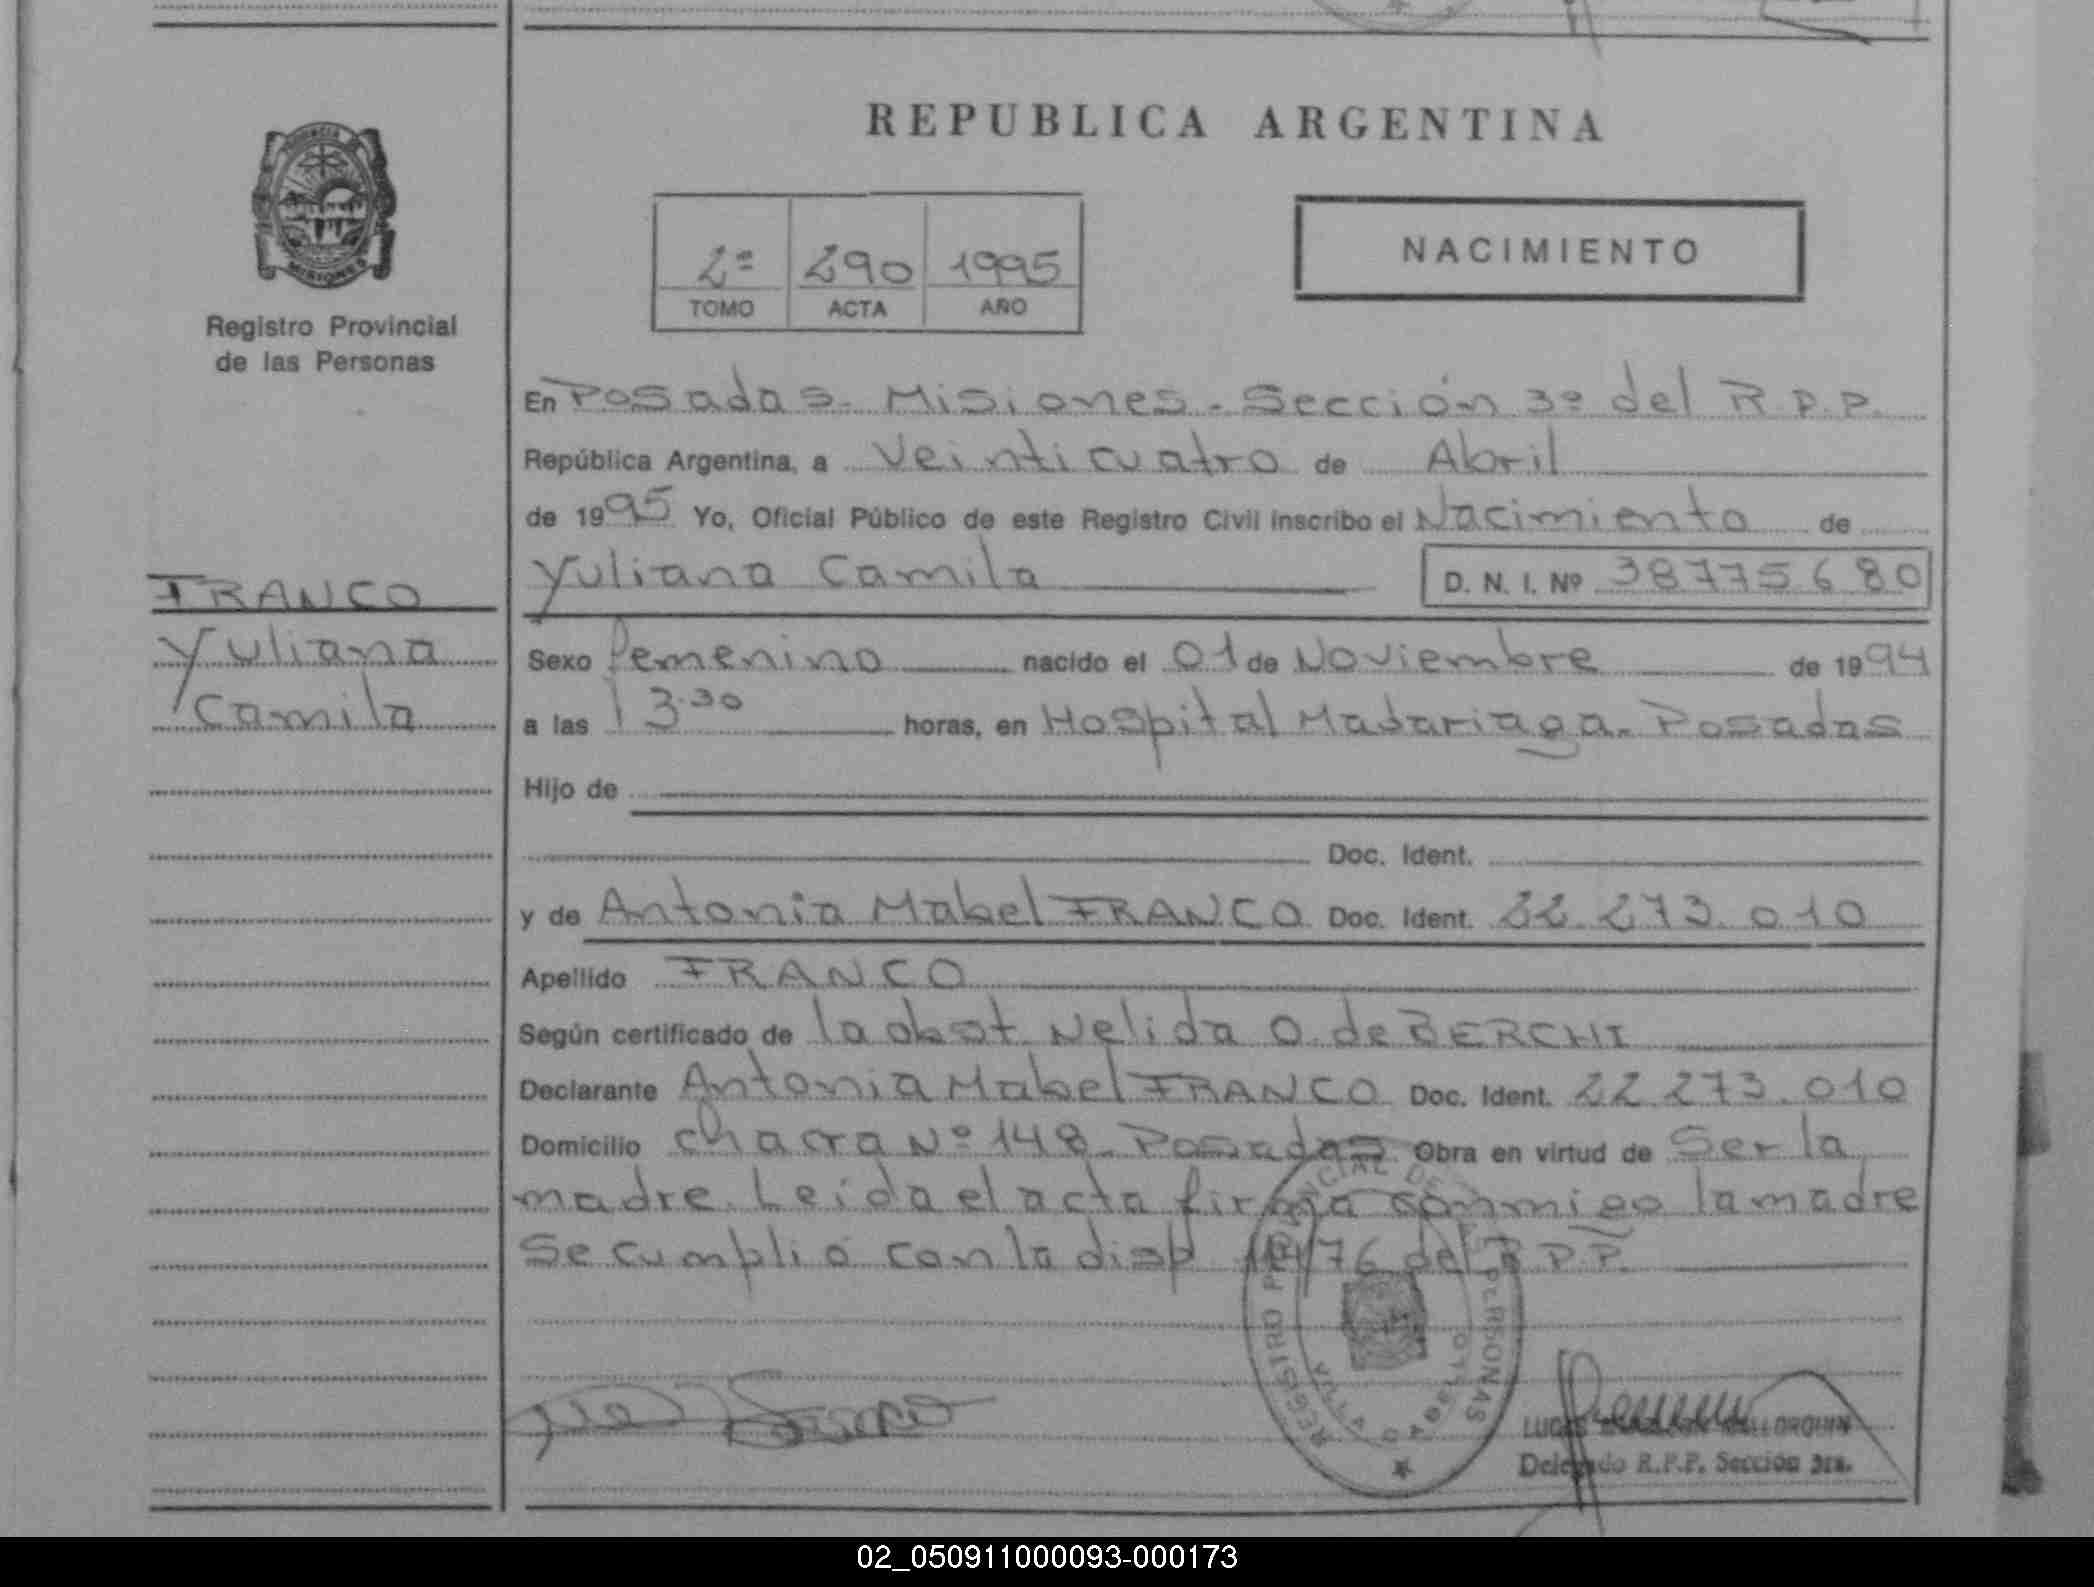 REPUBLICA ARGENTINA
PROVINCIA
MISIONES
Registro Provincial
de las Personas
2º 290 1995
TOMO ACTA AÑO
NACIMIENTO
En Posadas. Misiones. Sección 3º del R.P.P.
República Argentina, a Veinticuatro de Abril
de 1995 Yo, Oficial Público de este Registro Civil inscribo el Nacimiento de
Yuliana Camila D. N. I. Nº 38775680
FRANCO
Yuliana
Camila
Sexo femenino nacido el 01 de Noviembre de 1994
a las 13.30 horas, en Hospital Madariaga. Posadas
Hijo de
Doc. Ident.
y de Antonia Mabel FRANCO Doc. Ident. 22.273.010
Apellido FRANCO
Según certificado de la obst. Nelida O. de BERCHI
Declarante Antonia Mabel FRANCO Doc. Ident. 22.273.010
Domicilio chacra Nº 148. Posadas Obra en virtud de Ser la
madre. Leida el acta firma conmigo la madre
Se cumplió con la disp. /76 del R.P.P.
REGISTRO PROVINCIAL DE PERSONAS
VILLA
LUCAS
Delegado R.P.P. Sección 3ra.
02_050911000093-000173